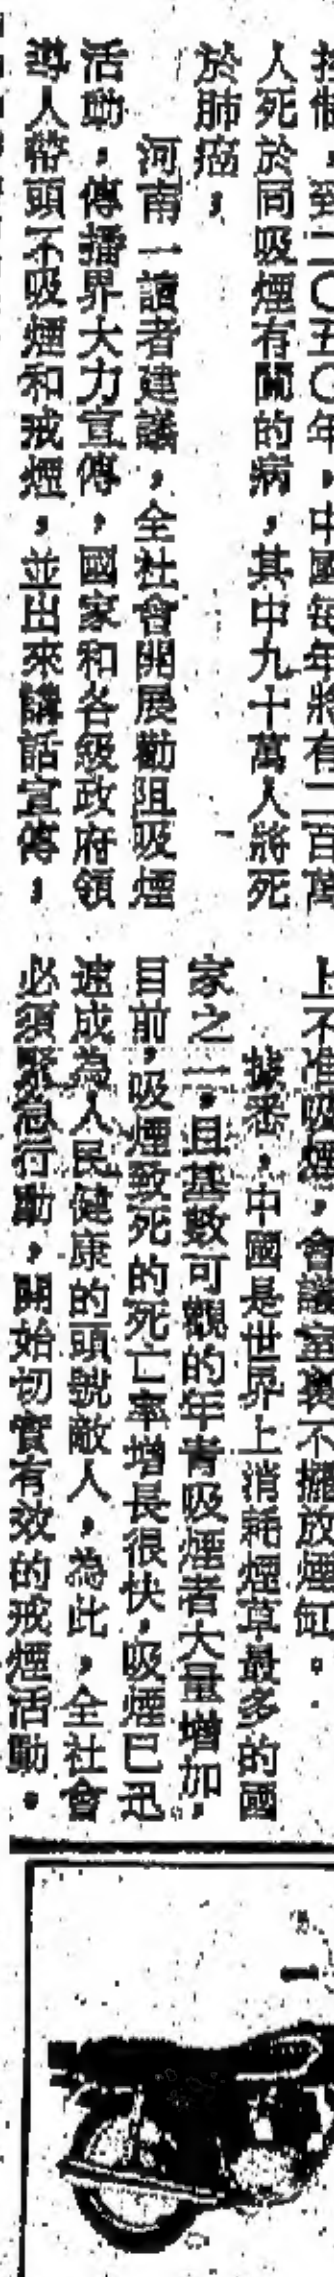 控制，到二〇五〇年，中國每年將有二百萬
人死於同吸煙有關的病，其中九十萬人將死
於肺癌，
河南一讀者建議，全社會開展勸阻吸煙
活動，傳播界大力宣傳，國家和各級政府領
導人帶頭不吸煙和戒煙，並出來講話宣傳，
上不准吸煙，會議室裏不擺放煙缸。
據悉，中國是世界上消耗煙草最多的國
家之一，且基數可觀的年青吸煙者大量增加，
目前，吸煙致死的死亡率增長很快，吸煙已迅
速成為人民健康的頭號敵人，為此，全社會
必須緊急行動，開始切實有效的戒煙活動。